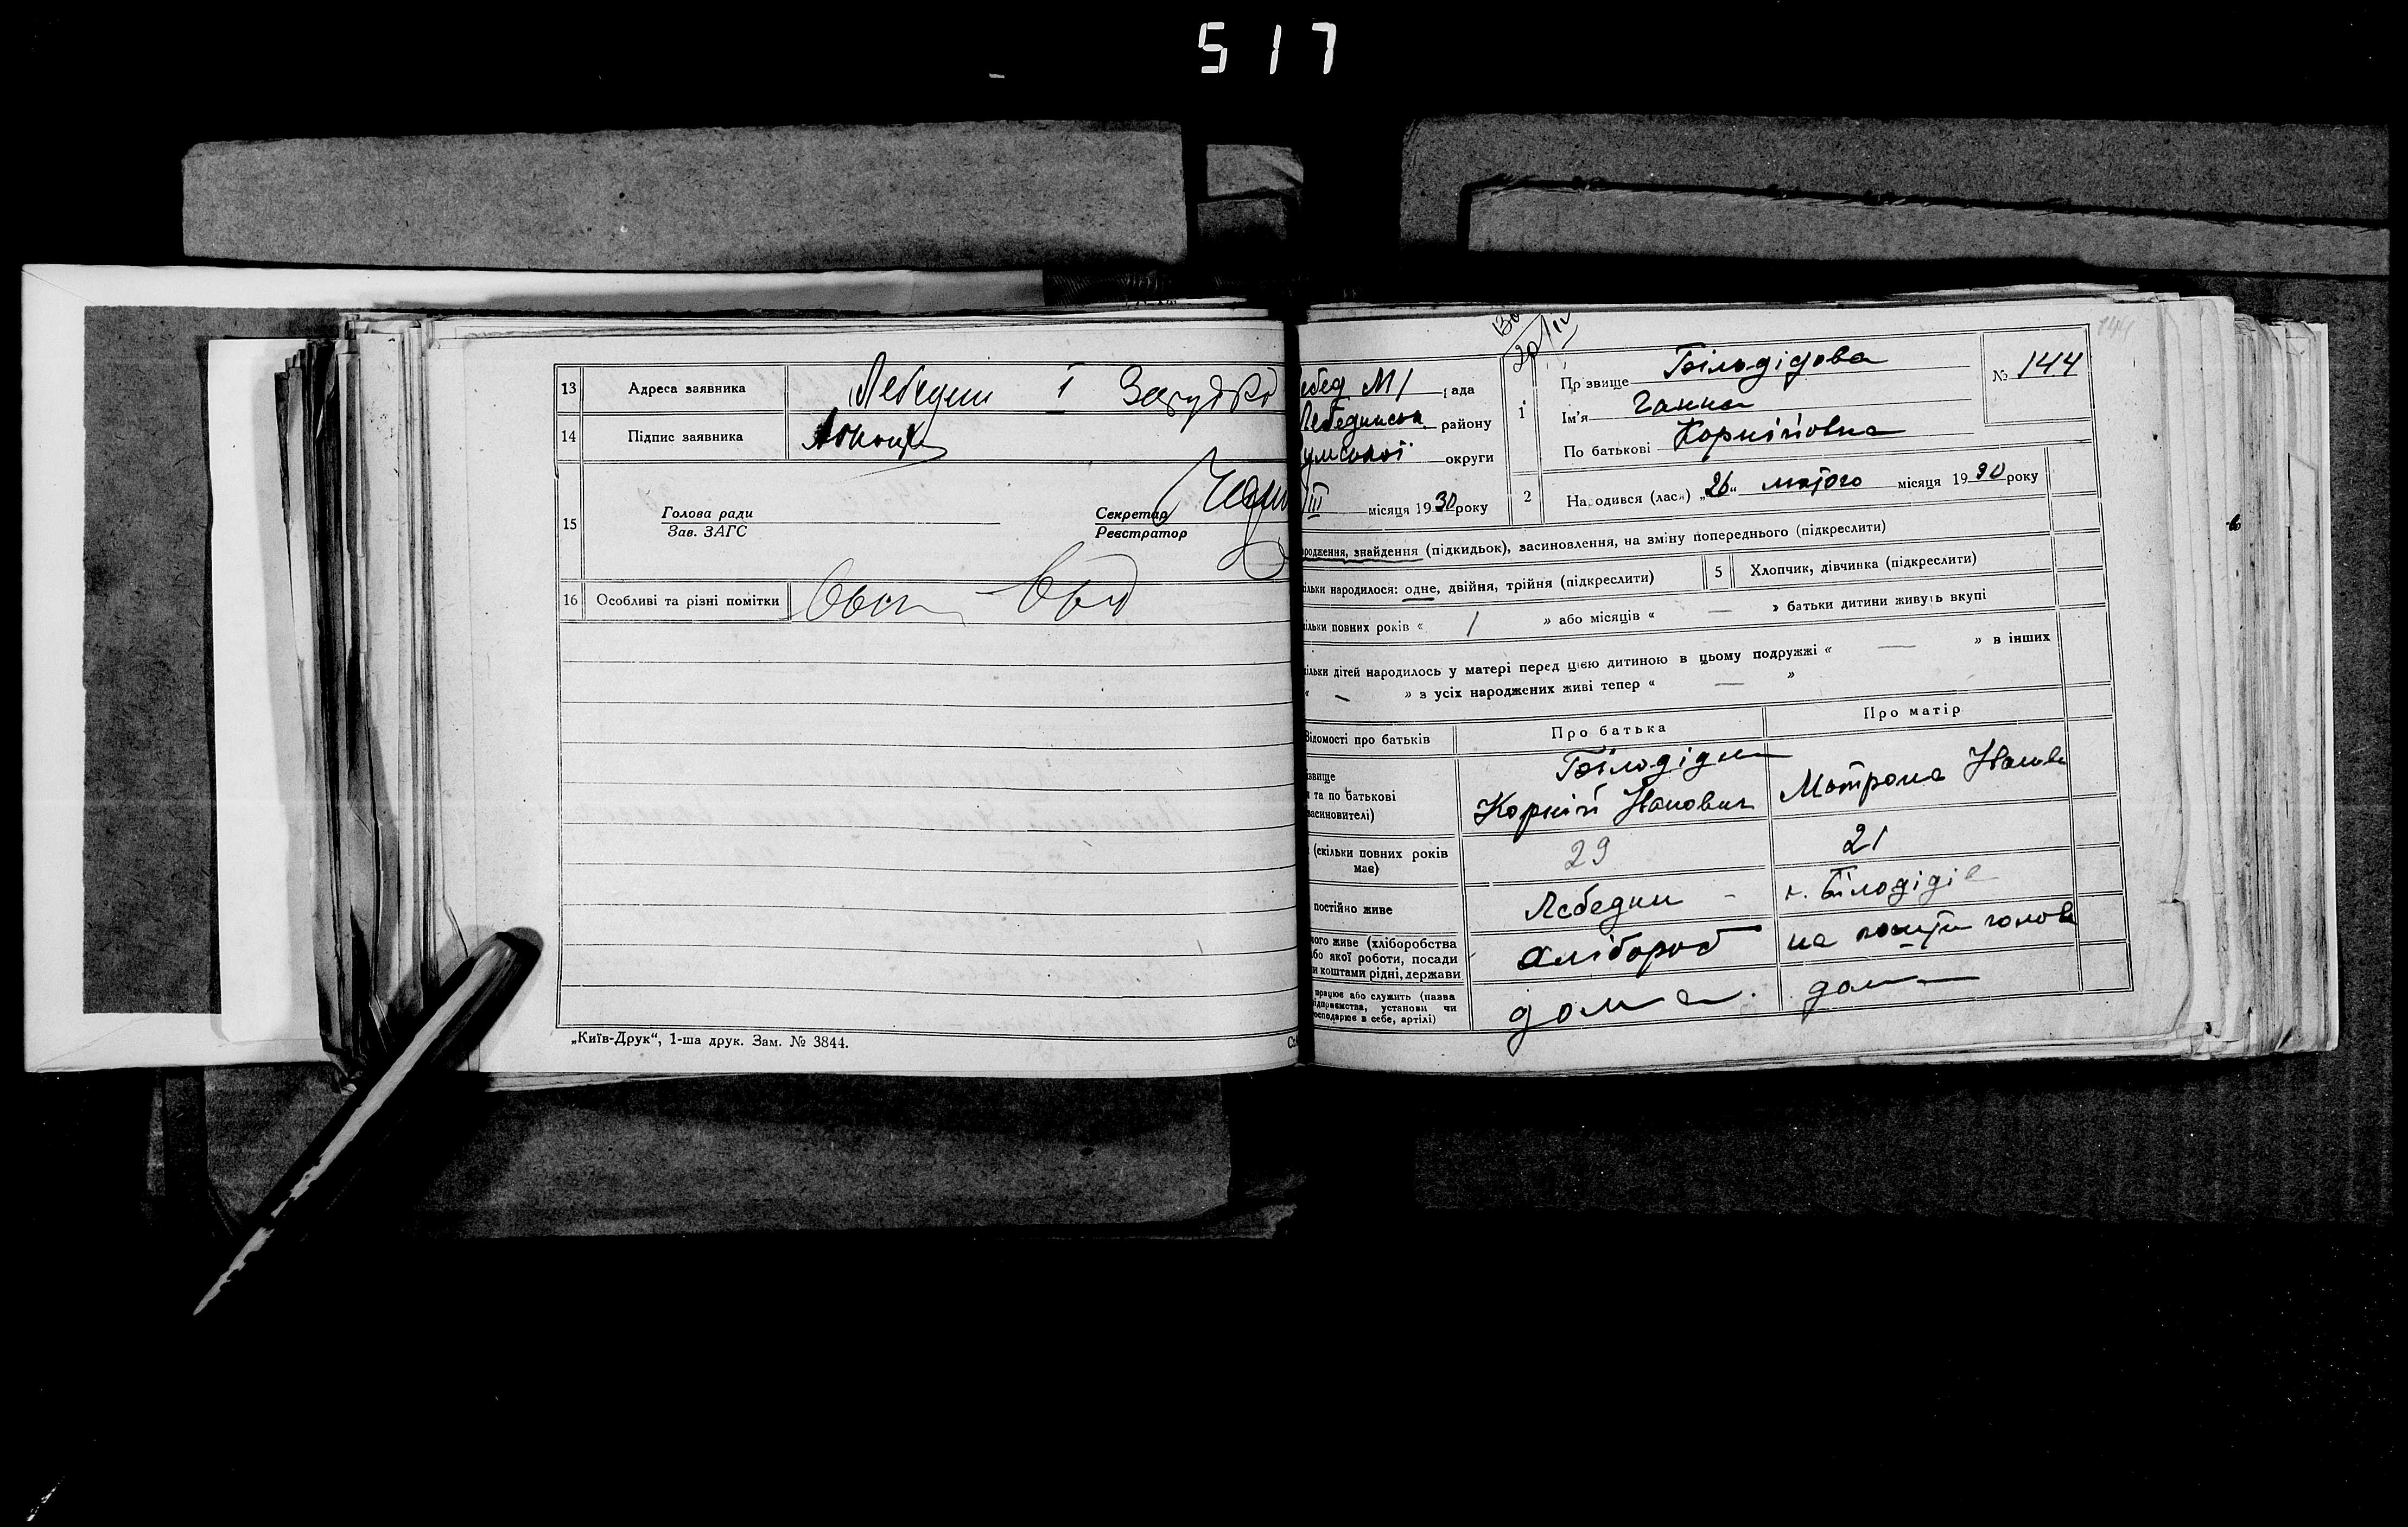 517
13 Адреса заявника Лебедин I
14 Підпис заявника
15 Голова ради
Зав. ЗАГС
Секретар
Реєстратор
16 Особливі та різні помітки
„Київ-Друк“, 1-ша друк. Зам. № 3844.
144
ебед М1 рада
Лебединськ району
умської округи
III місяця 1930 року
1 Прізвище Білодідова
Ім'я Ганна
По батькові Корніївна
№ 144
2 Народився (лась) „26“ лютого місяця 1930 року
родження, знайдення (підкидьок), засиновлення, на зміну попереднього (підкреслити)
ільки народилося: одне, двійня, трійня (підкреслити)
5 Хлопчик, дівчинка (підкреслити)
ільки повних років « 1 » або місяців « — » батьки дитини живуть вкупі
ільки дітей народилось у матері перед цією дитиною в цьому подружжі « — » в інших
« — » з усіх народжених живі тепер « — »
Відомості про батьків Про батька Про матір
ізвище
та по батькові
засиновителі)
Білодід
Корній Іванович
Мотрона Іванів
(скільки повних років
має)
29 21
постійно живе Лебедин х. Білодідів
кого живе (хліборобства
бо якої роботи, посади
и коштами рідні, держави
хлібороб
на голов
працює або служить (назва
підприємства, установи чи
осподарює в себе, артілі)
дома дома